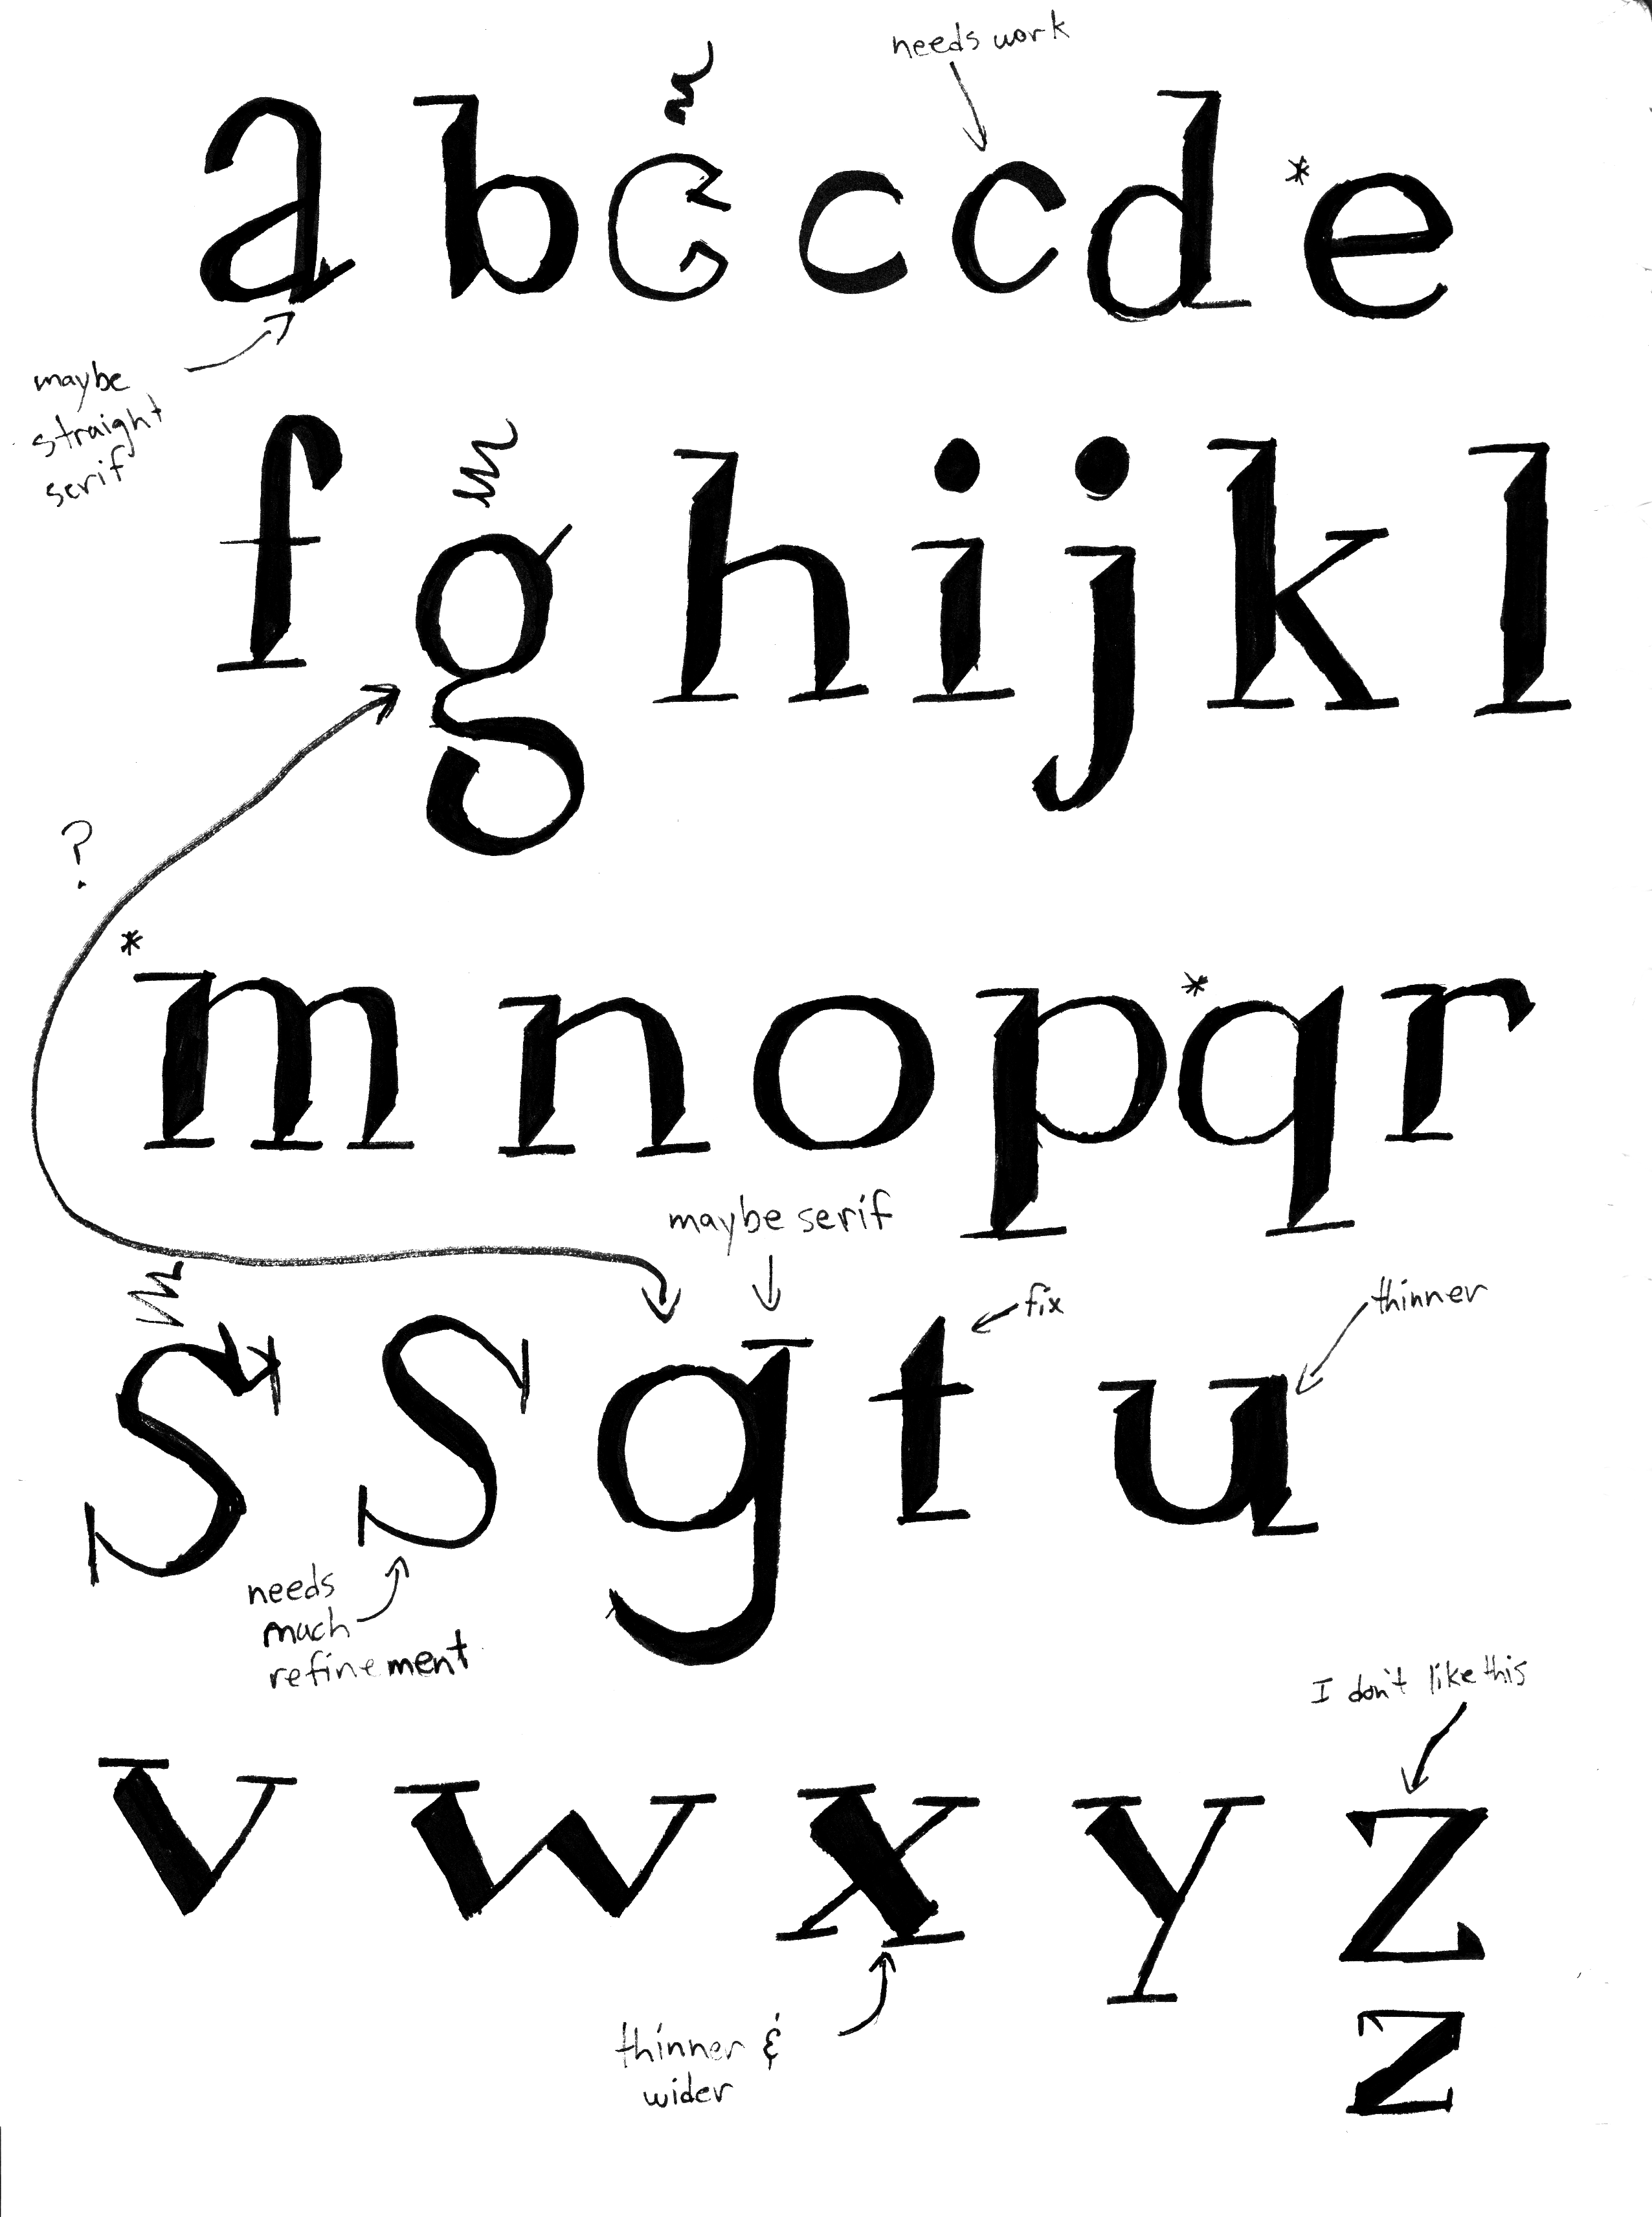 needs work
a b c c c d * e
maybe
straight
serif
f g h i j k l
?
* m n o p * q r
maybe serif
fix
thinner
S S g t u
needs
much
refinement
I don't like this
v w x y z
thinner &
wider
z